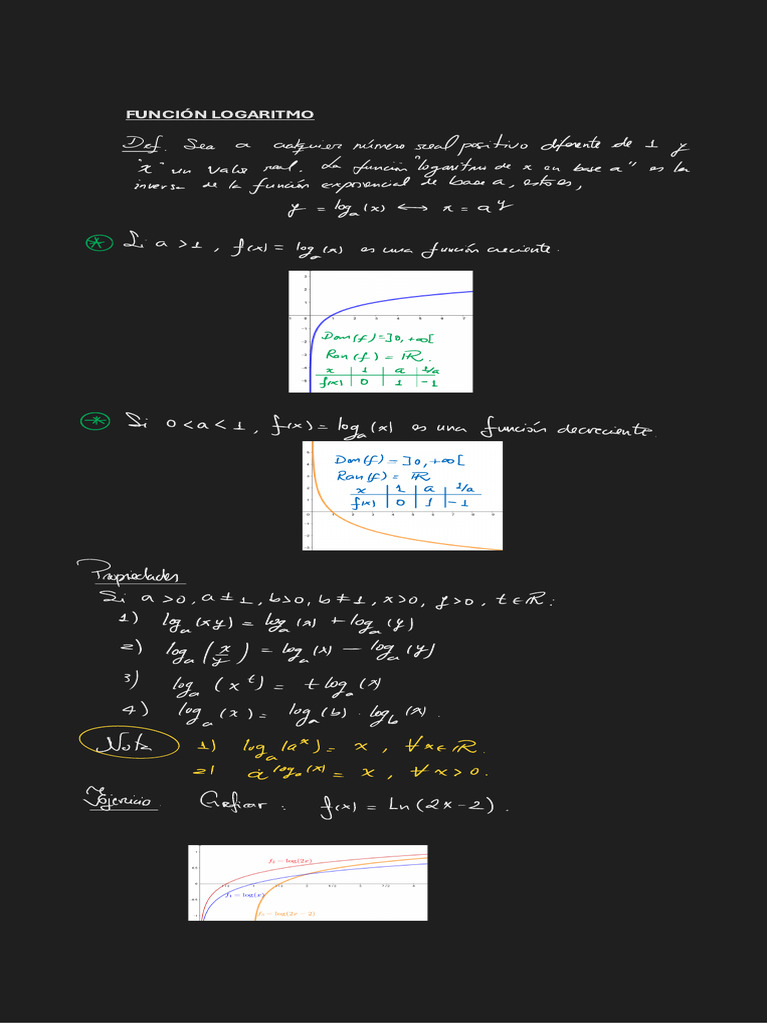 FUNCIÓN LOGARITMO
Def. Sea a cualquier número real positivo diferente de 1 y
"x" un valor real. La función "logaritmo de x en base a" es la
inversa de la función exponencial de base a, esto es,
y = logₐ(x) ⟷ x = a^y
* Si a > 1, f(x) = logₐ(x) es una función creciente.
Dom(f) = ]0, +∞[
Ran(f) = ℝ.
x | 1 | a | 1/a
f(x) | 0 | 1 | -1
* Si 0 < a < 1, f(x) = logₐ(x) es una función decreciente.
Dom(f) = ]0, +∞[
Ran(f) = ℝ
x | 1 | a | 1/a
f(x) | 0 | 1 | -1
Propiedades
Si a > 0, a ≠ 1, b > 0, b ≠ 1, x > 0, y > 0, t ∈ ℝ:
1) logₐ(xy) = logₐ(x) + logₐ(y)
2) logₐ(x/y) = logₐ(x) − logₐ(y)
3) logₐ(x^t) = t logₐ(x)
4) logₐ(x) = logₐ(b) · log_b(x).
Nota 1) logₐ(a^x) = x, ∀ x ∈ ℝ.
2) a^logₐ(x) = x, ∀ x > 0.
Ejercicio. Graficar : f(x) = Ln(2x-2).
f₂ = log(2x)
f₁ = log(x)
= log(2x − 2)